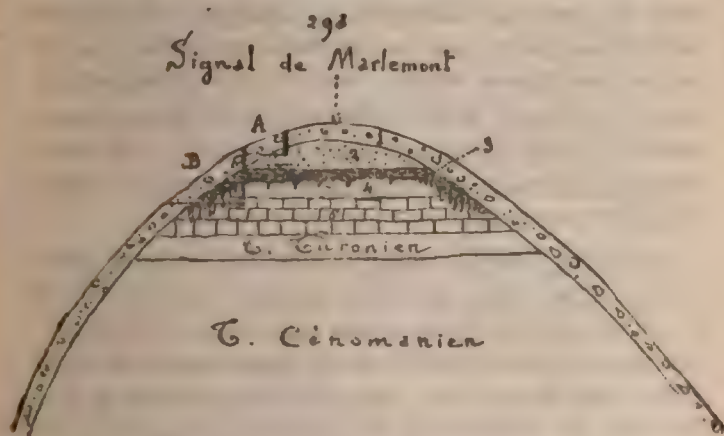 298
Signal de Marlemont
A
B
2
3
4
T. Turonien
T. Cénomanien